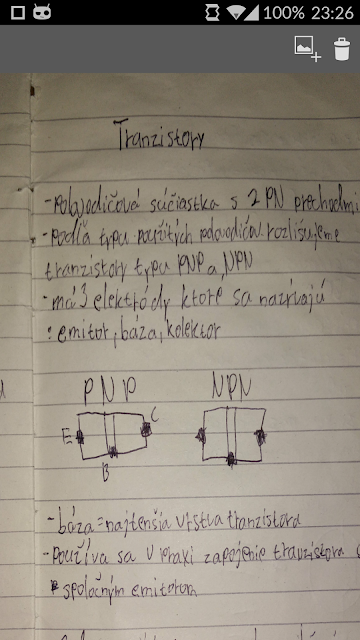 100% 23:26
Tranzistory
-Polovodičová súčiastka s 2 PN prechodmi
-Podľa typu použitých polovodičov rozlišujeme
tranzistory typu PNP a NPN
-má 3 elektródy ktoré sa nazívajú
: emitor, báza, kolektor
PNP NPN
E C
B
-báza=najtenšia vrstva tranzistora
-Používa sa v praxi zapojenie tranzistora
spoločným emitorom